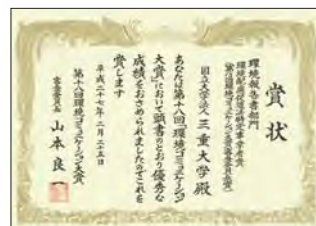 賞状
環境報告書部門
環境配慮促進法特定事業者賞
(第18回環境コミュニケーション大賞審査委員長賞)
国立大学法人 三重大学 殿
あなたは第十八回「環境コミュニケーション
大賞」において頭書のとおり優秀な
成績をおさめられましたのでこれを
賞します
平成二十七年二月二十五日
第十八回環境コミュニケーション大賞
審査委員長 山本良一